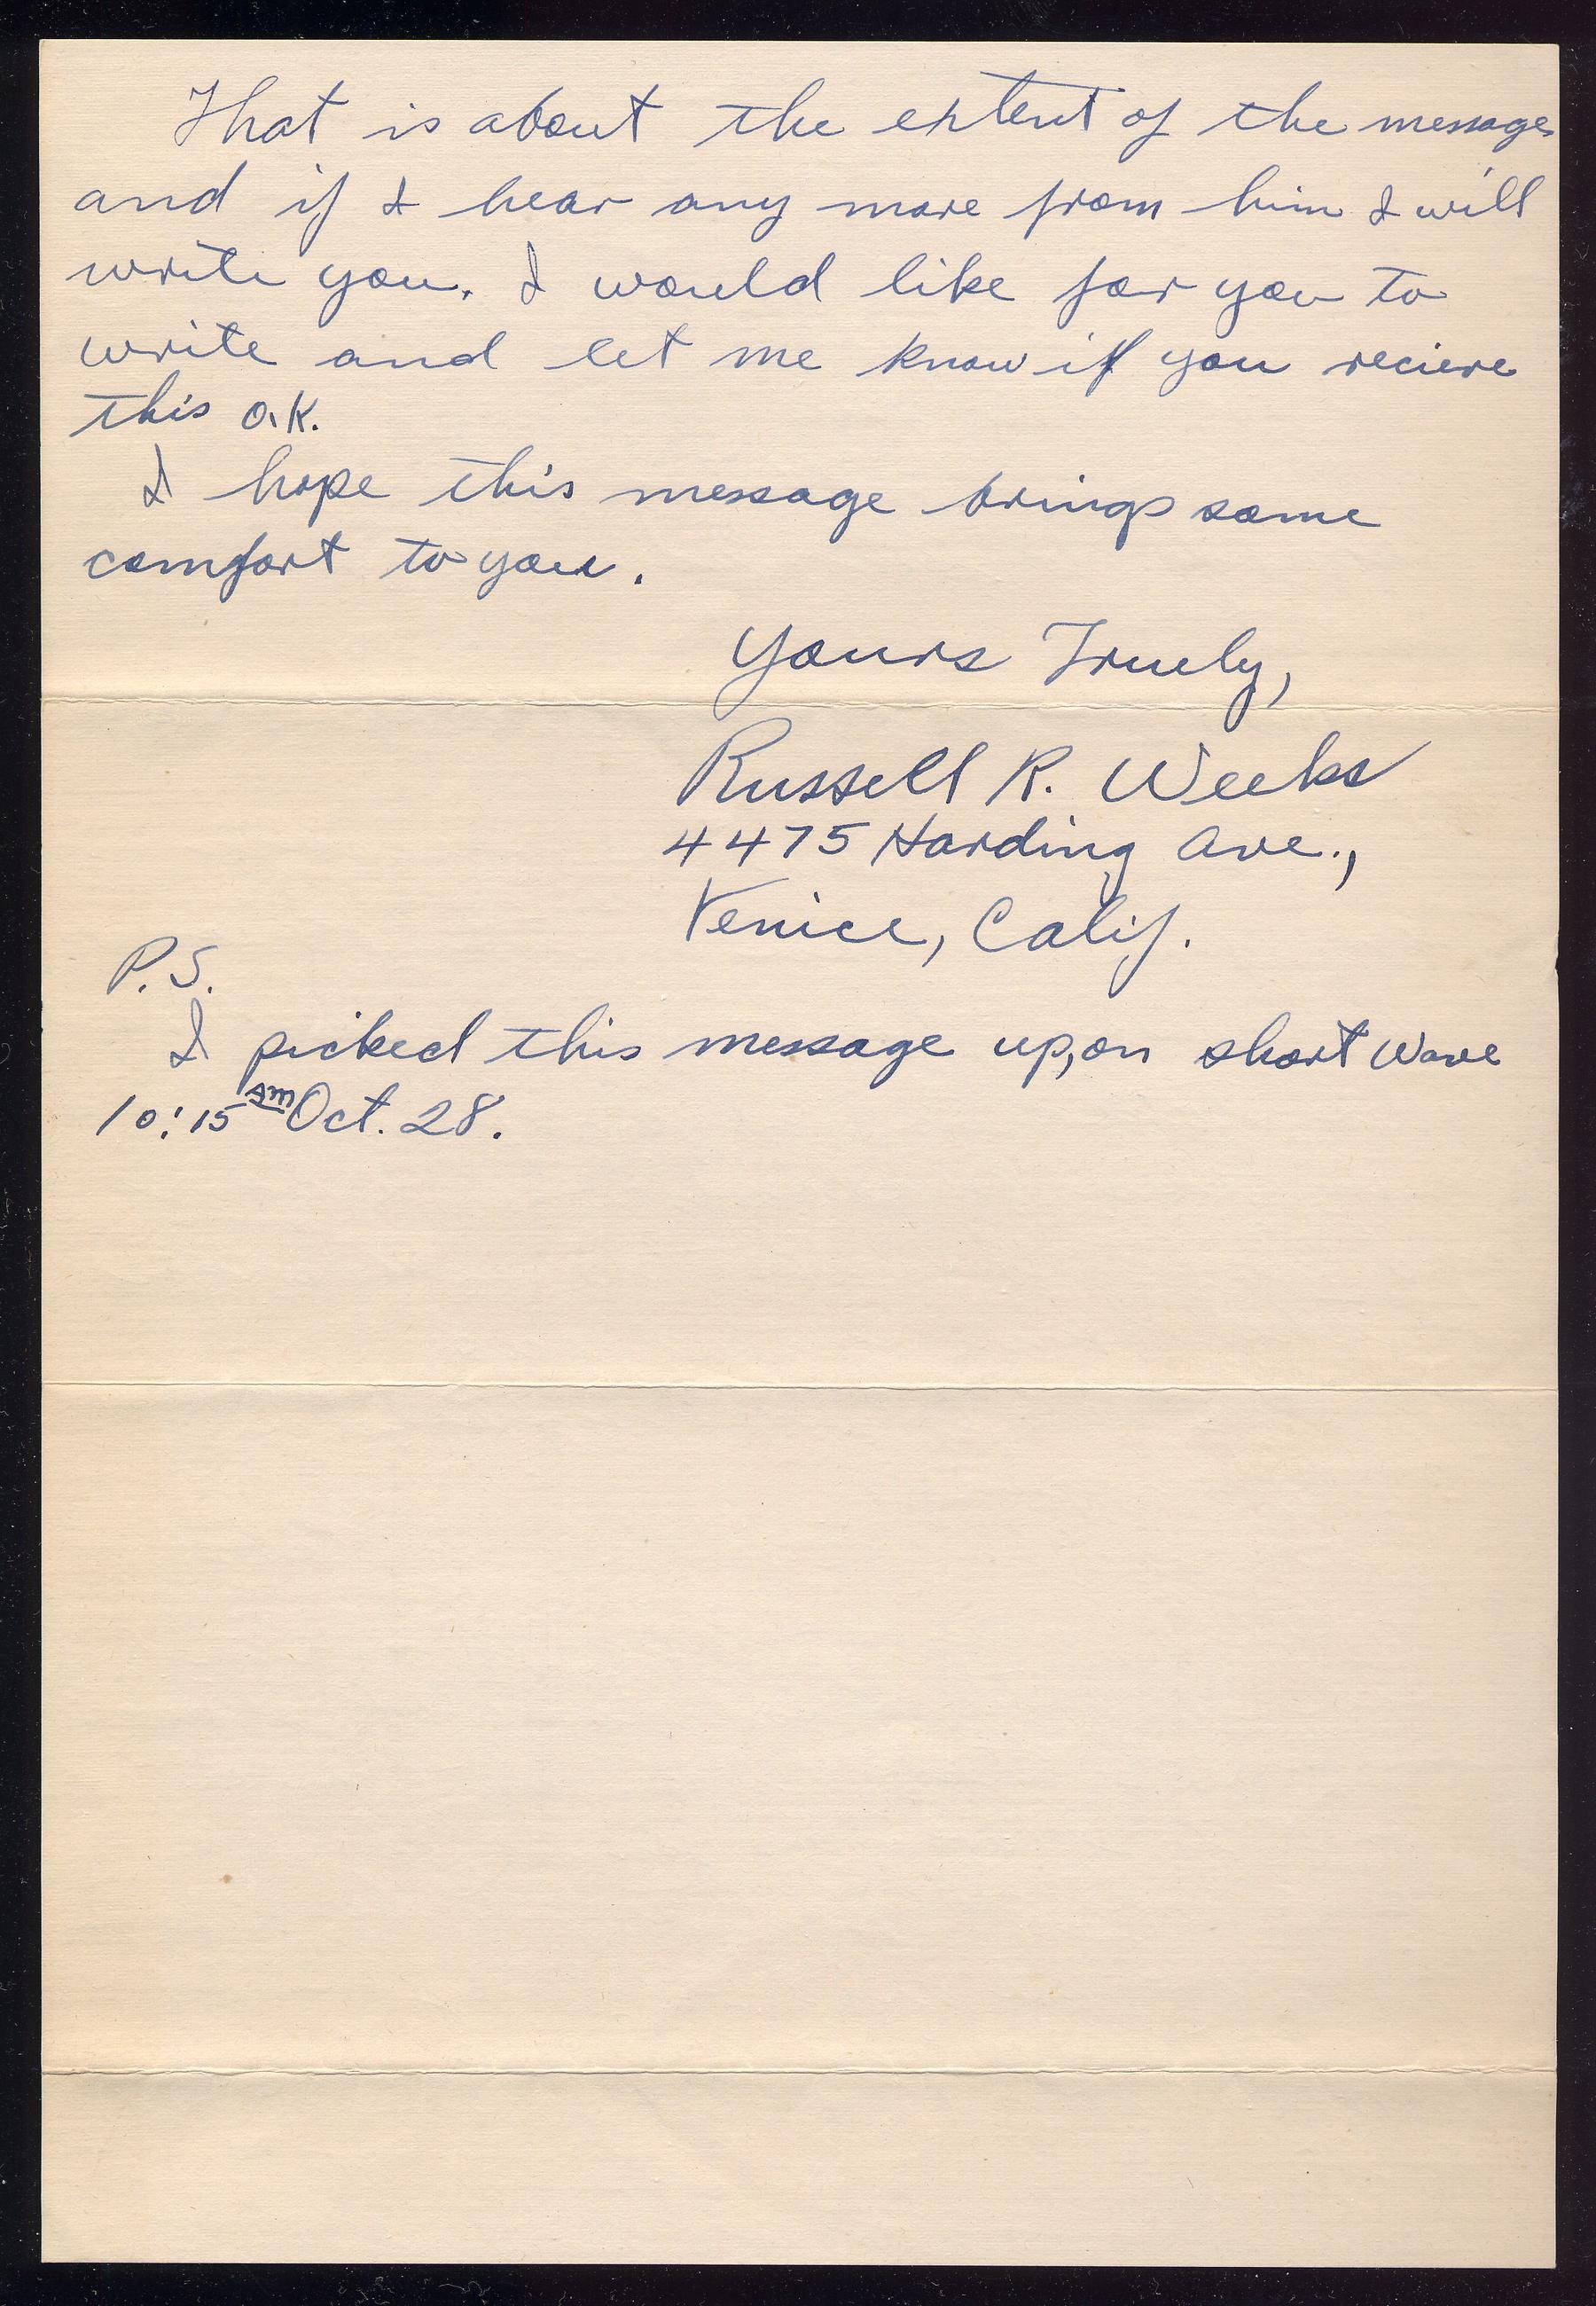 That is about the extent of the message
and if I hear any more from him I will
write you. I would like for you to
write and let me know if you recieve
this O.K.
I hope this message brings some
comfort to you.
Yours Truely,
Russell R. Weeks
4475 Harding Ave.,
Venice, Calif.
P.S.
I picked this message up, on short wave
10:15 AM Oct. 28.